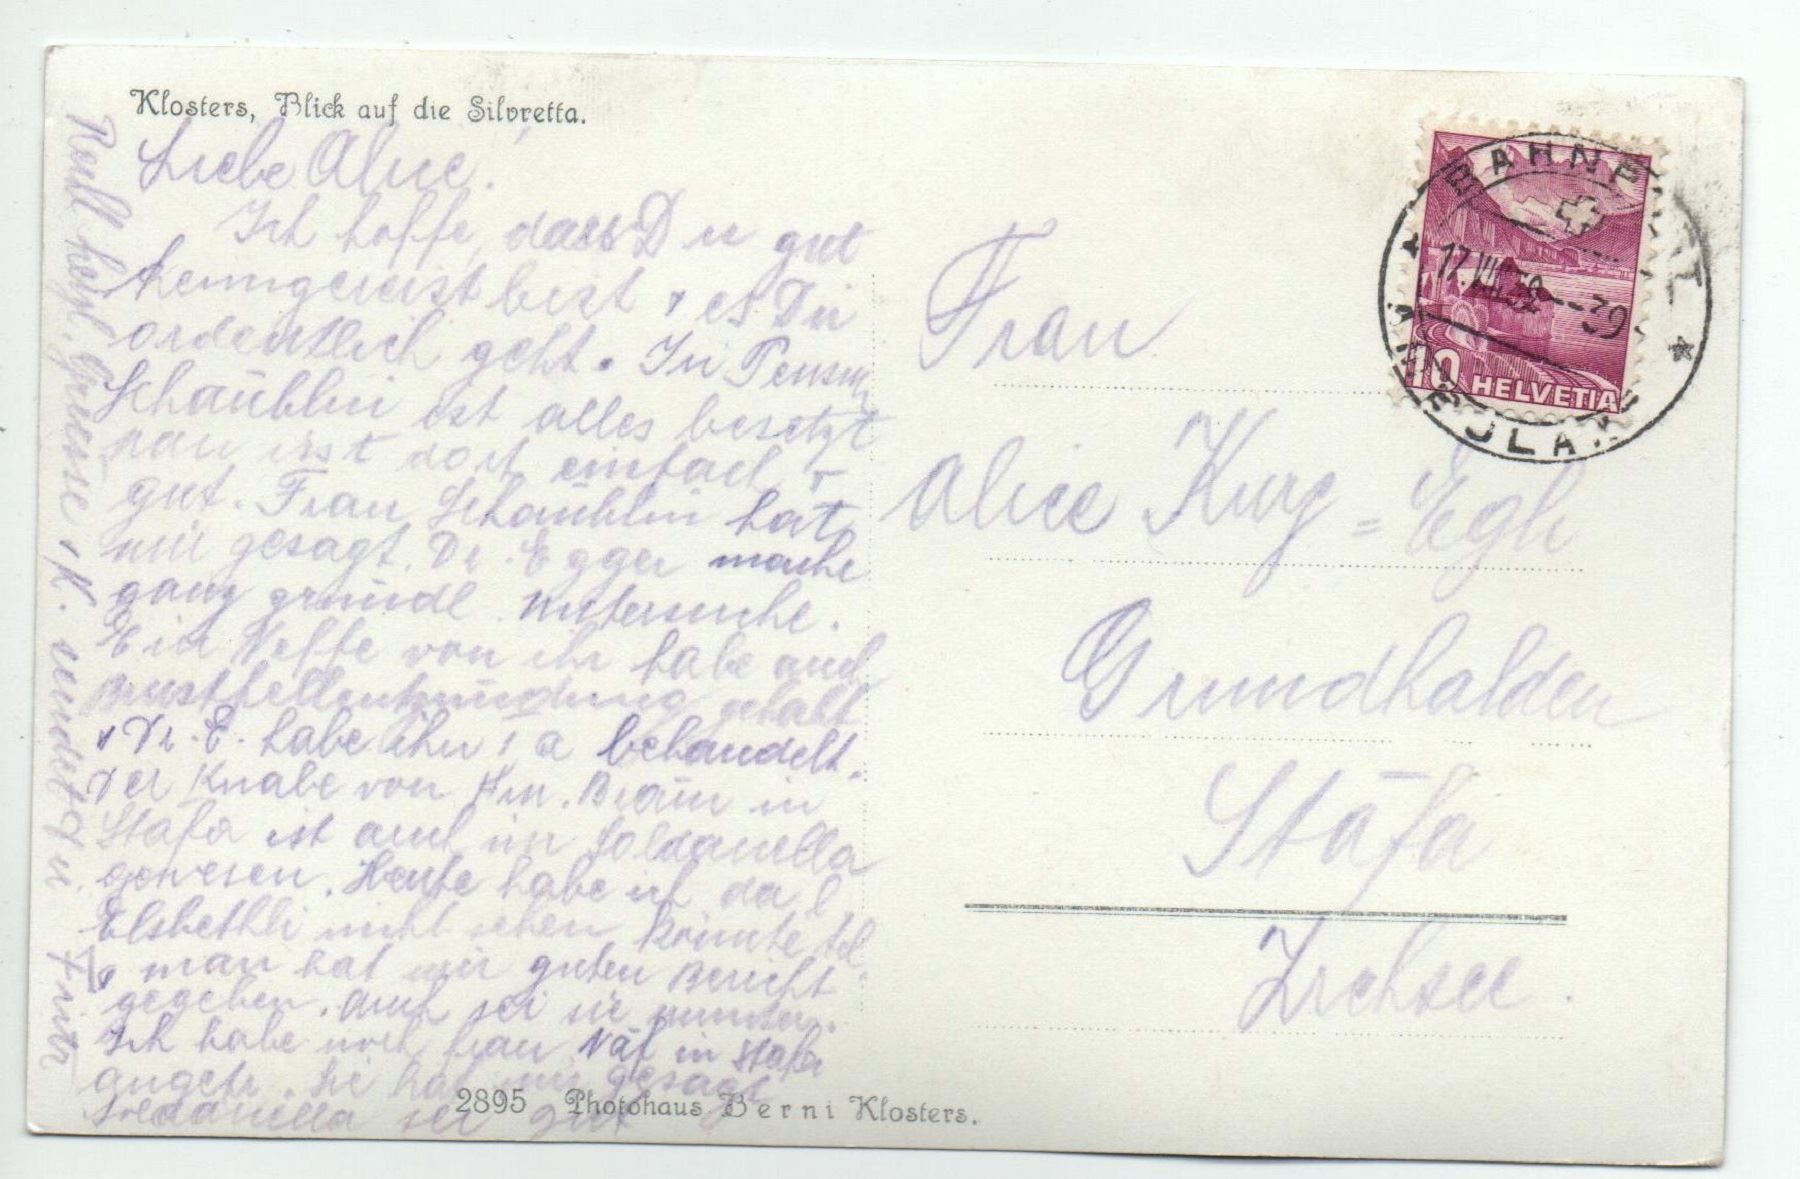 Klosters, Blick auf die Silvretta.
Liebe Alice!
Ich hoffe, dass Du gut
heimgereist bist & es Dir
ordentlich geht. In Pension
Schäublin ist alles besetzt
man isst dort einfach &
gut. Frau Schäublin hat
mir gesagt, Dr. Egger mache
ganz gründl. Untersuche.
Ein Neffe von ihr habe auch
Brustfellentzündung gehabt
& Dr. E. habe ihn 1 a behandelt.
Der Knabe von Hrn. Bräm in
Stäfa ist auch in Soldanella
gewesen. Heute habe ich da
Elsbethli nicht sehen können
& man hat mir guten Bericht
gegeben. Auch sei sie munter.
Ich habe noch Frau Näf in Stäfa
angefr. Sie hat mir gesagt
Soldanella sei gut
Recht herzl. Grüsse & K. sendet Dir Fritz
2895 Photohaus Berni Klosters.
BAHNPOST
17.VIII.39--39
AMBULANT
10 HELVETIA
Frau
Alice Kurz=Egli
Grundhalden
Stäfa
Zrchsee.